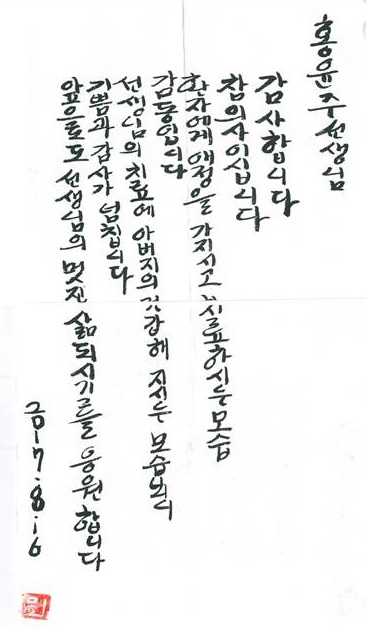 홍윤주 선생님
감사합니다
참 의사이십니다
환자에게 애정을 가지시고 진료하시는 모습
감동입니다
선생님의 치료에 아버지의 건강해 지시는 모습보니
기쁨과 감사가 넘칩니다
앞으로도 선생님의 멋진 삶되시기를 응원합니다
2017.8.16